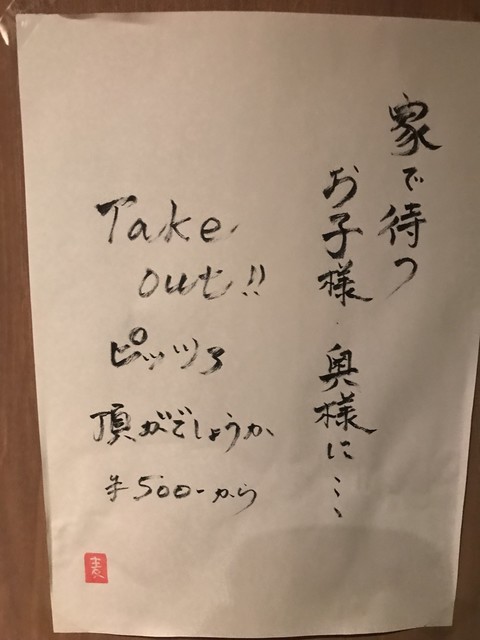 家で待つ
お子様・奥様に…
Take
out!!
ピッツァ
頂がでしょうか
¥500-から